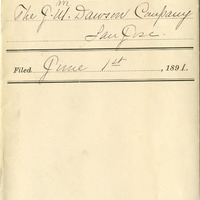 The J. M. Dawson Company
San Jose.
Filed June 1st, 1891.